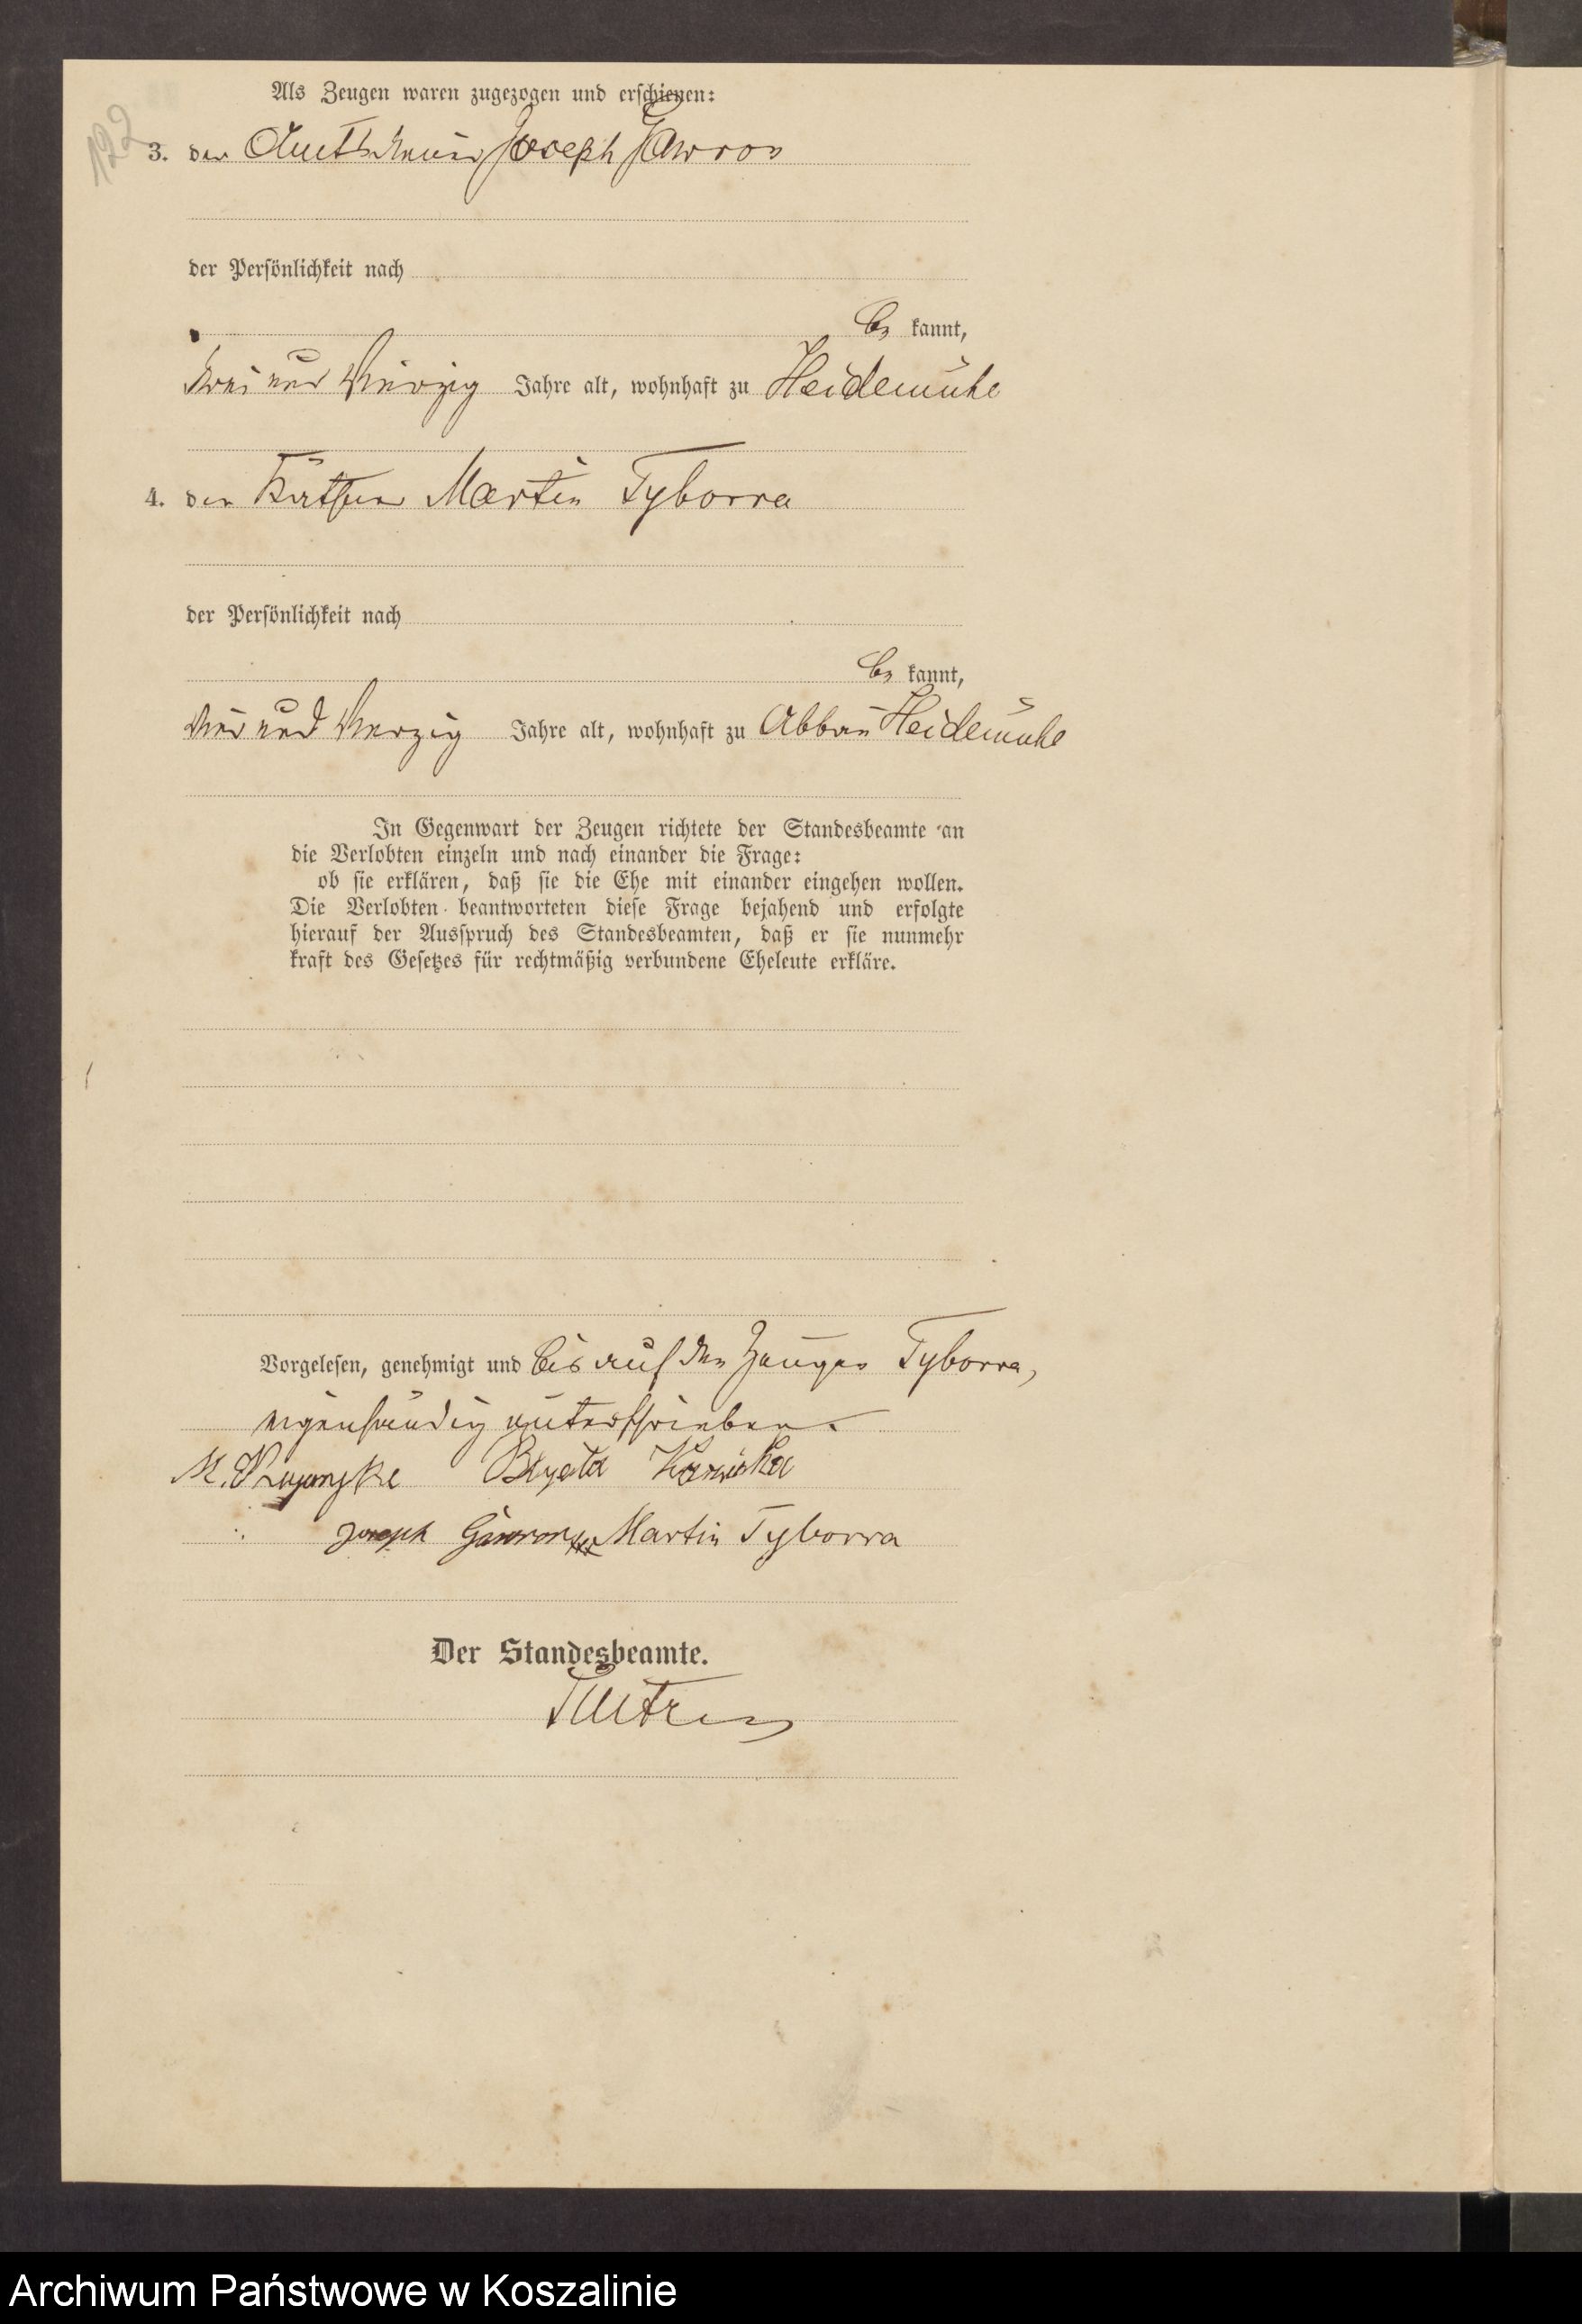 Als Zeugen waren zugezogen und erschienen:
122
3. der Amtsdiener Joseph Gawron
der Persönlichkeit nach
be kannt,
und vierzig Jahre alt, wohnhaft zu Heidemühl
4. der Käthner Martin Tyborra
der Persönlichkeit nach
be kannt,
vier und vierzig Jahre alt, wohnhaft zu Abbau Heidemühl
In Gegenwart der Zeugen richtete der Standesbeamte an
die Verlobten einzeln und nach einander die Frage:
ob sie erklären, daß sie die Ehe mit einander eingehen wollen.
Die Verlobten beantworteten diese Frage bejahend und erfolgte
hierauf der Ausspruch des Standesbeamten, daß er sie nunmehr
kraft des Gesetzes für rechtmäßig verbundene Eheleute erkläre.
Vorgelesen, genehmigt und bis auf den Zeugen Tyborra,
eigenhändig unterschrieben.
M.
Joseph Gawron xxx Martin Tyborra
Der Standesbeamte.
Archiwum Państwowe w Koszalinie